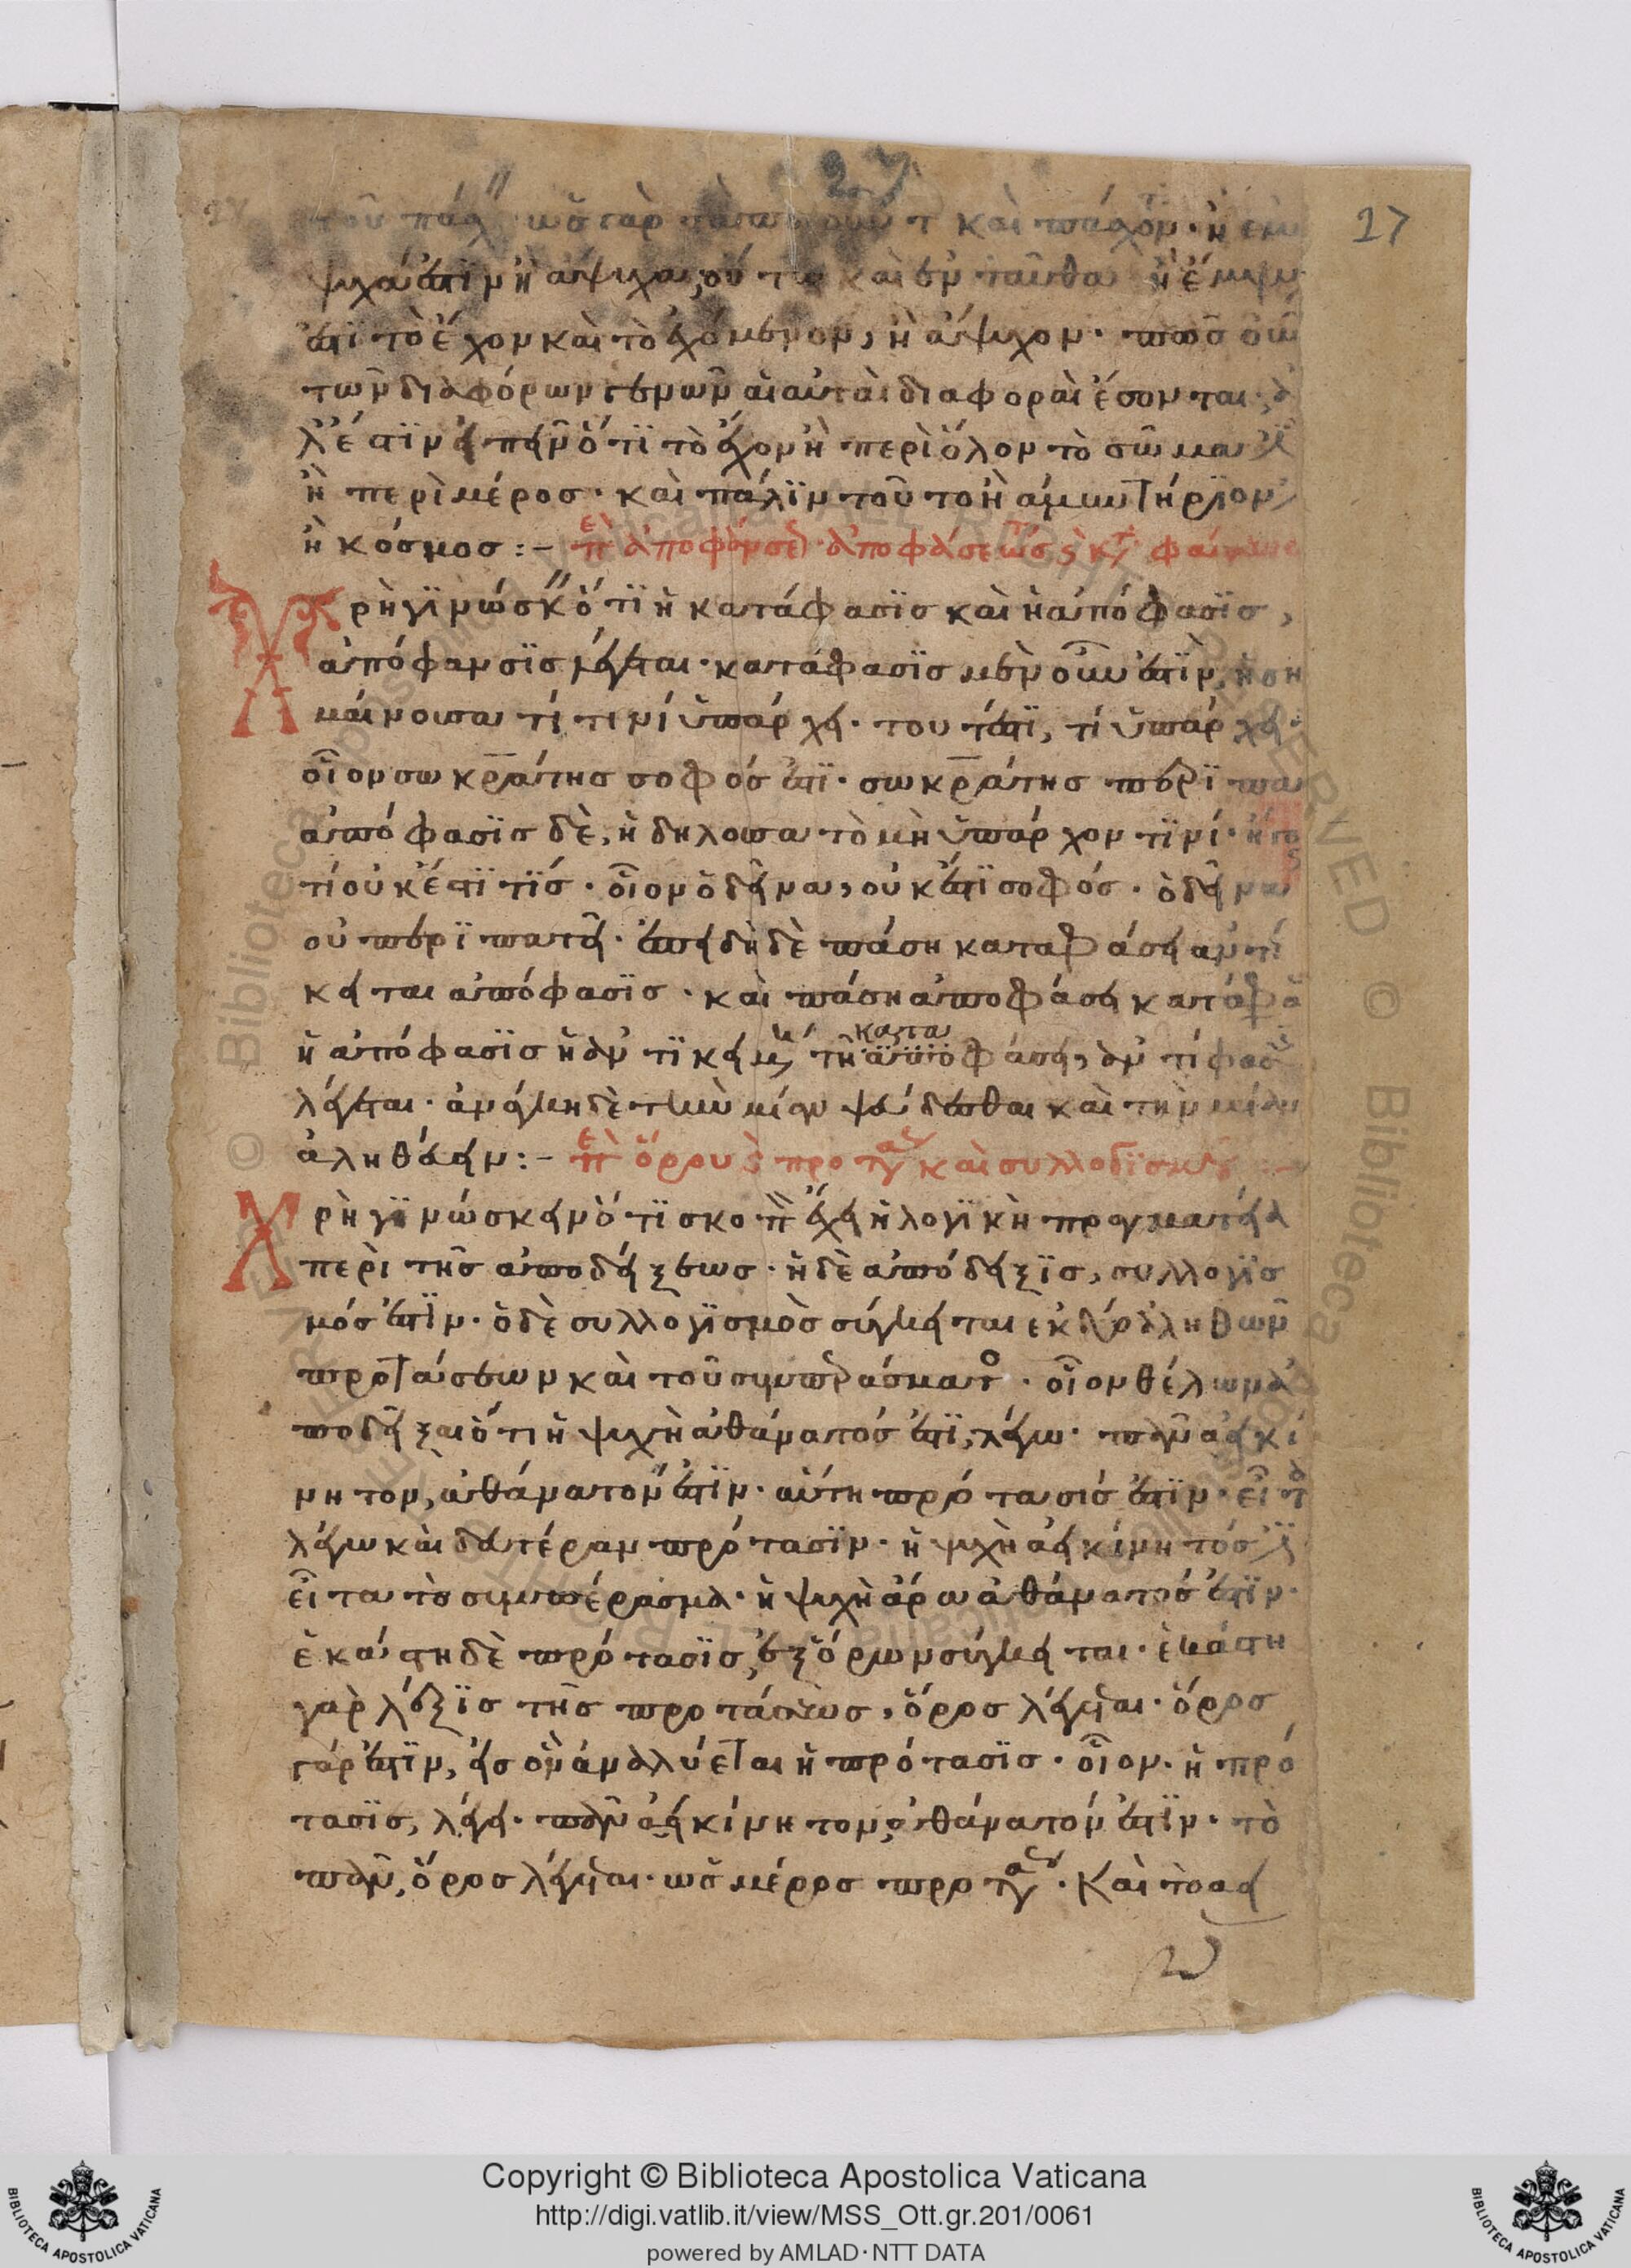 27
17
ψυχά ἐστιν ἢ ἄψυχα, οὕτω καὶ ἐνταῦθα ἢ ἔμψυ
ἐστι τὸ ἔχον καὶ τὸ ἐχόμενον, ἢ ἄψυχον· πῶς οὖν
τῶν διαφόρων γενῶν αἱ αὐταὶ διαφοραὶ ἔσονται·
λέ ἐστιν εἰπεῖν ὅτι τὸ ἔχον ἢ περὶ ὅλον τὸ σῶμα
ἢ περὶ μέρος· καὶ πάλιν τοῦτο ἢ ἀμυντήριον
ἢ κόσμος:- πε ἀποφάνσε ἀποφάσεώς κτ φα
Χρὴ γινώσκ ὅτι ἡ κατάφασις καὶ ἡ ἀπόφασις,
ἀπόφανσις λέγεται· κατάφασις μὲν οὖν ἐστιν, ἡ ση
μαίνουσα τί τινί ὑπάρχει· τουτέστι, τί ὑπάρχει·
οἷον σωκράτης σοφός ἐστι· σωκράτης περιπα
ἀπόφασις δὲ, ἡ δηλοῦσα τὸ μὴ ὑπάρχον τινί·
τί οὐκ ἔστι τίς· οἷον ὁ δεῖνα, οὐκ ἔστι σοφός· ὁ δεῖνα
οὐ περιπατεῖ· ἐπειδὴ δὲ πάση καταφάσει ἀντί
κειται ἀπόφασις· καὶ πάση ἀποφάσει κατάφα
ἡ ἀπόφασις ἡ ἀντικειμ τῆ κατα ἀποφάσει, ἀντίφασ
λέγεται· ἀνάγκη δὲ τὴν μίαν ψεύδεσθαι καὶ τὴν μίαν
ἀληθεύειν:- πε ὅρου ς προτας καὶ συλλογισμοῦ :-
Χρὴ γινώσκειν ὅτι σκοπ ἔχει ἡ λογικὴ πραγματεία
περὶ τῆς ἀποδείξεως· ἡ δὲ ἀπόδειξις, συλλογισ
μός ἐστιν· ὁ δὲ συλλογισμὸς σύγκειται ἐκ δύο ἀληθῶν
προτάσεων καὶ τοῦ συμπεράσματο· οἷον θέλων ἀ
ποδεῖξαι ὅτι ἡ ψυχὴ ἀθάνατός ἐστι, λέγω· πᾶν ἀεικί
νητον, ἀθάνατόν ἐστιν· αὕτη πρότασίς ἐστιν· εἶτα
λέγω καὶ δευτέραν πρότασιν· ἡ ψυχὴ ἀεικίνητός ἐστι
εἶτα τὸ συμπέρασμα· ἡ ψυχὴ ἄρα ἀθάνατός ἐστιν·
ἑκάστη δὲ πρότασις, ἐξ ὅρων σύγκειται· ἑκάστη
γὰρ λέξις τῆς προτάσεως, ὅρος λέγεται· ὅρος
γάρ ἐστιν, εἰς ὃν ἀναλύεται ἡ πρότασις· οἷον· ἡ πρό
τασις, λέγει· πᾶν ἀεικίνητον, ἀθάνατόν ἐστιν· τὸ
πᾶν, ὅρος λέγεται· ὡς μέρος προτας· Καὶ τὸ αει
Copyright © Biblioteca Apostolica Vaticana
http://digi.vatlib.it/view/MSS_Ott.gr.201/0061
powered by AMLAD·NTT DATA
BIBLIOTECA APOSTOLICA VATICANA
BIBLIOTECA APOSTOLICA VATICANA